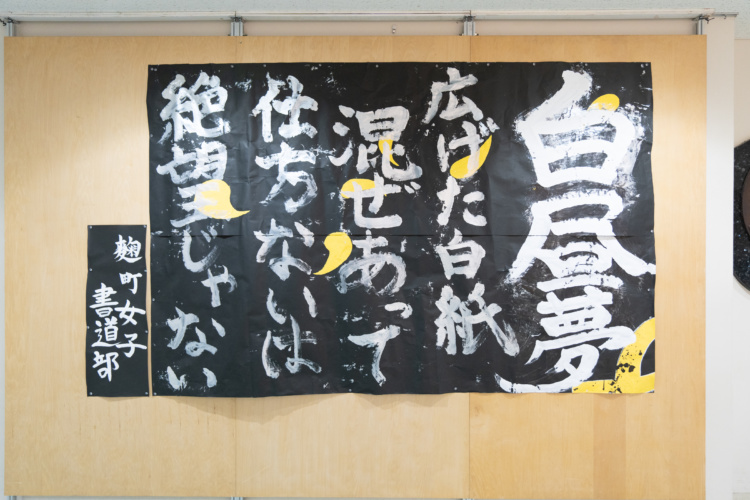 白昼夢
広げた白紙
混ぜあって
仕方ないは
絶望じゃない
麹町女子
書道部